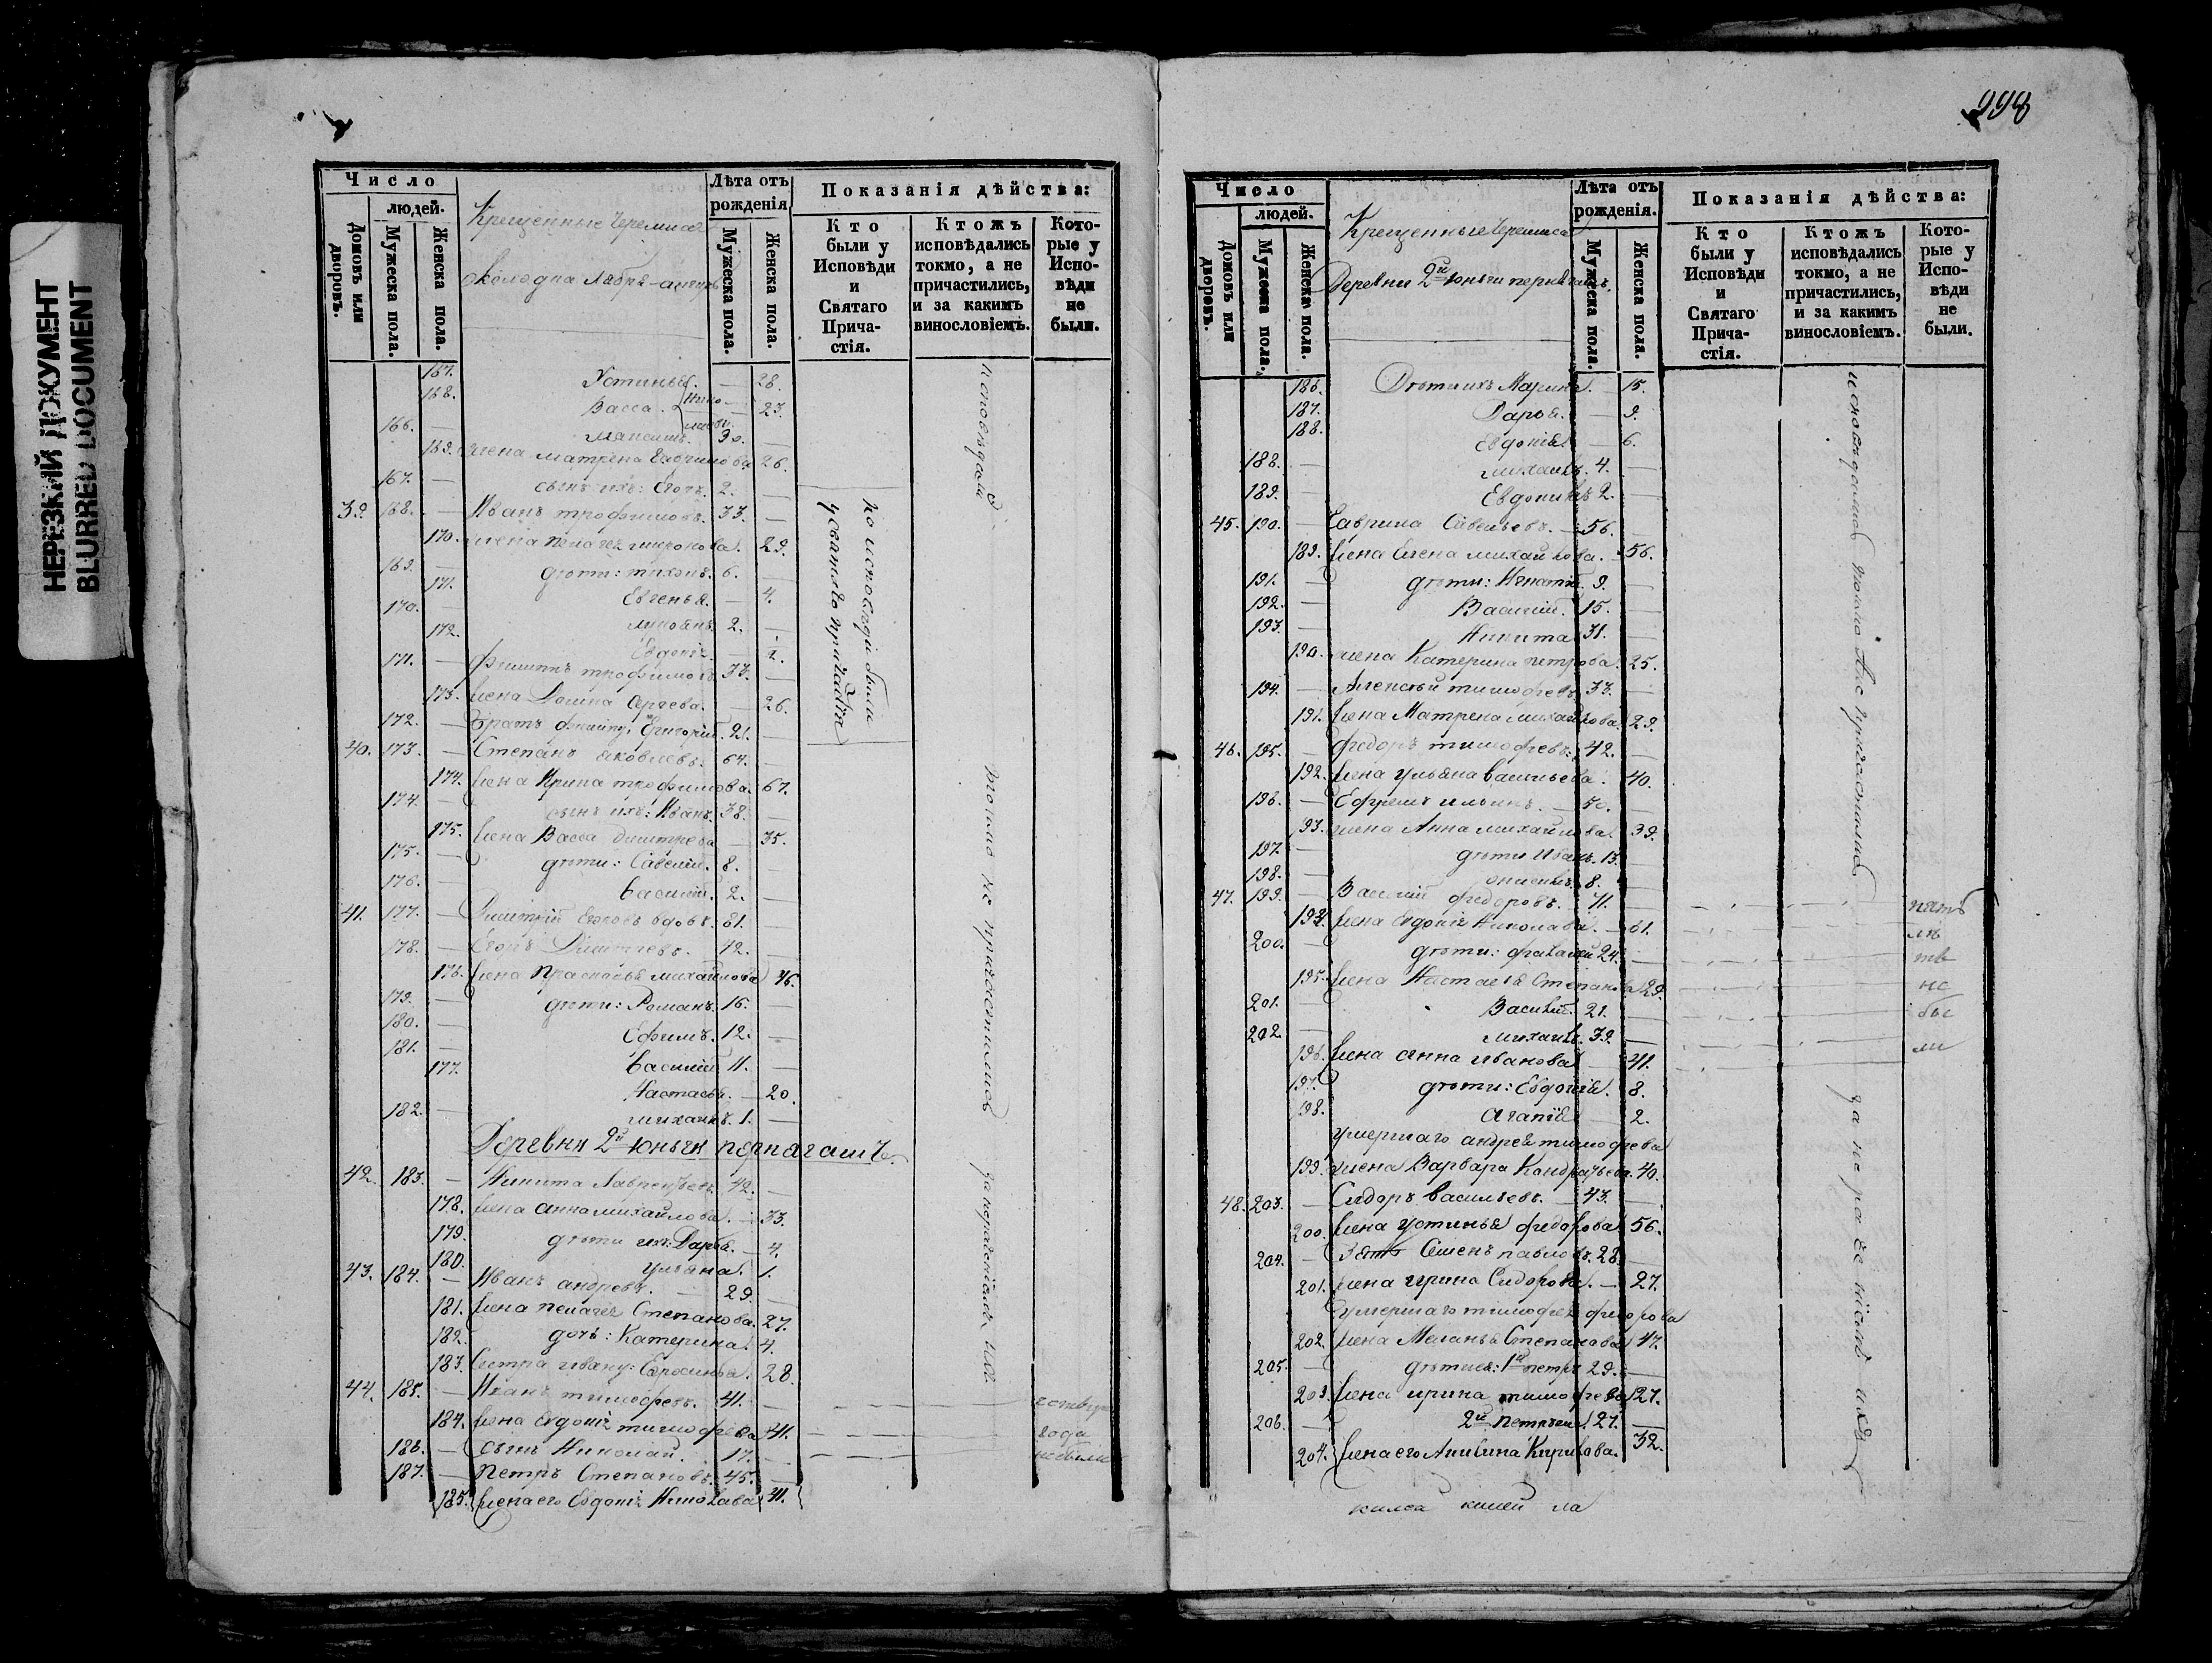 НЕРЕЗКИЙ ДОКУМЕНТ
BLURRED DOCUMENT
998
Число
людей.
Домовъ или дворовъ.
Мужеска пола.
Женска пола.
Крещенные Черемиса
Околодка
Лѣта отъ рожденія
Мужеска пола.
Женска пола.
Показанія дѣйства:
Кто были у Исповѣди и Святаго Причастія.
Ктожъ исповѣдались токмо, а не причастились, и за какимъ винословіемъ.
Которые у Исповѣди не были.
167. Устинья. — 28.
168. Васса. — 23.
166. — Максимъ. 30. —
169. жена Матрена Гаврилова 26.
167. — сынъ ихъ: Егоръ. 2. —
39. 168. — Иванъ трофимовъ. 33. —
170. жена Пелагея миронова. 29.
169. — дѣти: тихонъ. 6. —
171. Евгенья. — 4.
170. — 2. —
172. Евдокія. —
171. — Филиппъ трофимовъ 33. —
173. жена Домна Сергева. — 26.
172. — Братъ Филиппу Григорій. 21. —
40. 173. — Степанъ яковлевъ. 64. —
174. жена Ирина трофимова. 67.
174. — сынъ ихъ: Иванъ. 38. —
175. жена Васса дмитрева — 35.
175. — дѣти: Савелій. 8. —
176. — Василій. 2. —
41. 177. — Дмитрій Егоровъ вдовъ. 81. —
178. — Егоръ Дмитревъ. 42. —
176. жена Прасковья михайлова 46.
179. — дѣти: Романъ. 16. —
180. — Ефимъ. 12. —
181. — Василій 11. —
177. Настасья. — 20.
182. — михаилъ. 1. —
Деревня 2я юнъга пернягашъ.
42. 183. — Никита Лаврентьевъ. 42. —
178. жена анна михайлова. — 33.
179. дѣти ихъ: Дарья. — 4.
180. ульяна. 1.
43. 184. — Иванъ андревъ. — 29. —
181. жена пелагея Степанова. 27.
182. дочь: Катерина. 4.
183. Сестра ивану: Ефросинья. 28.
44. 185. — Иванъ тимофеевъ. 41. —
184. жена евдокія тимофеева 41.
186. — сынъ Николай. 17. —
187. — Петръ Степановъ. 45. —
185. жена его Евдокія Николаева 31.
по исповѣди были
у святаго причастія
исповѣдались
токмо не причастились
за нерадѣніемъ ихъ
года
небыли
Число
людей.
Домовъ или дворовъ.
Мужеска пола.
Женска пола.
Крещенные Черемиса
Деревни 2й юнъги пернягашъ.
Лѣта отъ рожденія.
Мужеска пола.
Женска пола.
Показанія дѣйства:
Кто были у Исповѣди и Святаго Причастія.
Ктожъ исповѣдались токмо, а не причастились, и за какимъ винословіемъ.
Которые у Исповѣди не были.
186. Дѣти ихъ Марина. — 15.
187. Дарья. — 9.
188. Евдокія — 6.
188. — михаилъ. 4. —
189. — Евдокимъ 2. —
45. 190. — Гаврила Савельевъ. — 56. —
189. жена Елена михайлова. — 56.
191. — дѣти: Игнатій. 9. —
192. — Василій. 15. —
193. — Никита 31. —
190. жена Катерина петрова. 25.
194. — Алексѣй тимофеевъ 33. —
191. жена Матрена михайлова 29.
46. 195. — Федоръ тимофеевъ: 42. —
192. жена ульяна васильева. 40.
196. — Ефремъ ильинъ. — 50. —
93. жена Анна михайлова. 39.
197. — дѣти Иванъ. 13. —
198. — 8. —
47. 199. — Василій федоровъ. 71. —
194. жена евдокія Николаева. — 61.
200. — дѣти: 24. —
195. жена Настасья Степанова 29.
201. — Василій. 21. —
202. — михаилъ. 39. —
196. жена анна иванова — 41.
197. дѣти: Евдокія. 8.
198. агапія 2.
умершаго андрея тимофеева
199. жена Варвара Кондратьева. 40.
48. 203. — Сидоръ васильевъ. — 43. —
200. жена устинья федорова 56.
204. — Зять Семенъ павловъ. 28. —
201. жена ирина Сидорова. — 27.
умершаго тимофея федорова
202. жена Маланья Степанова 47.
205. — дѣти ея: 1й петръ 29. —
203. жена ирина тимофеева 27.
206. — 2й 21. —
204. жена его Акилина Кирилова. 32.
исповѣдались токмо а не причастились
за нерадѣніемъ ихъ
пять
лѣ
тъ
не
бы
ли